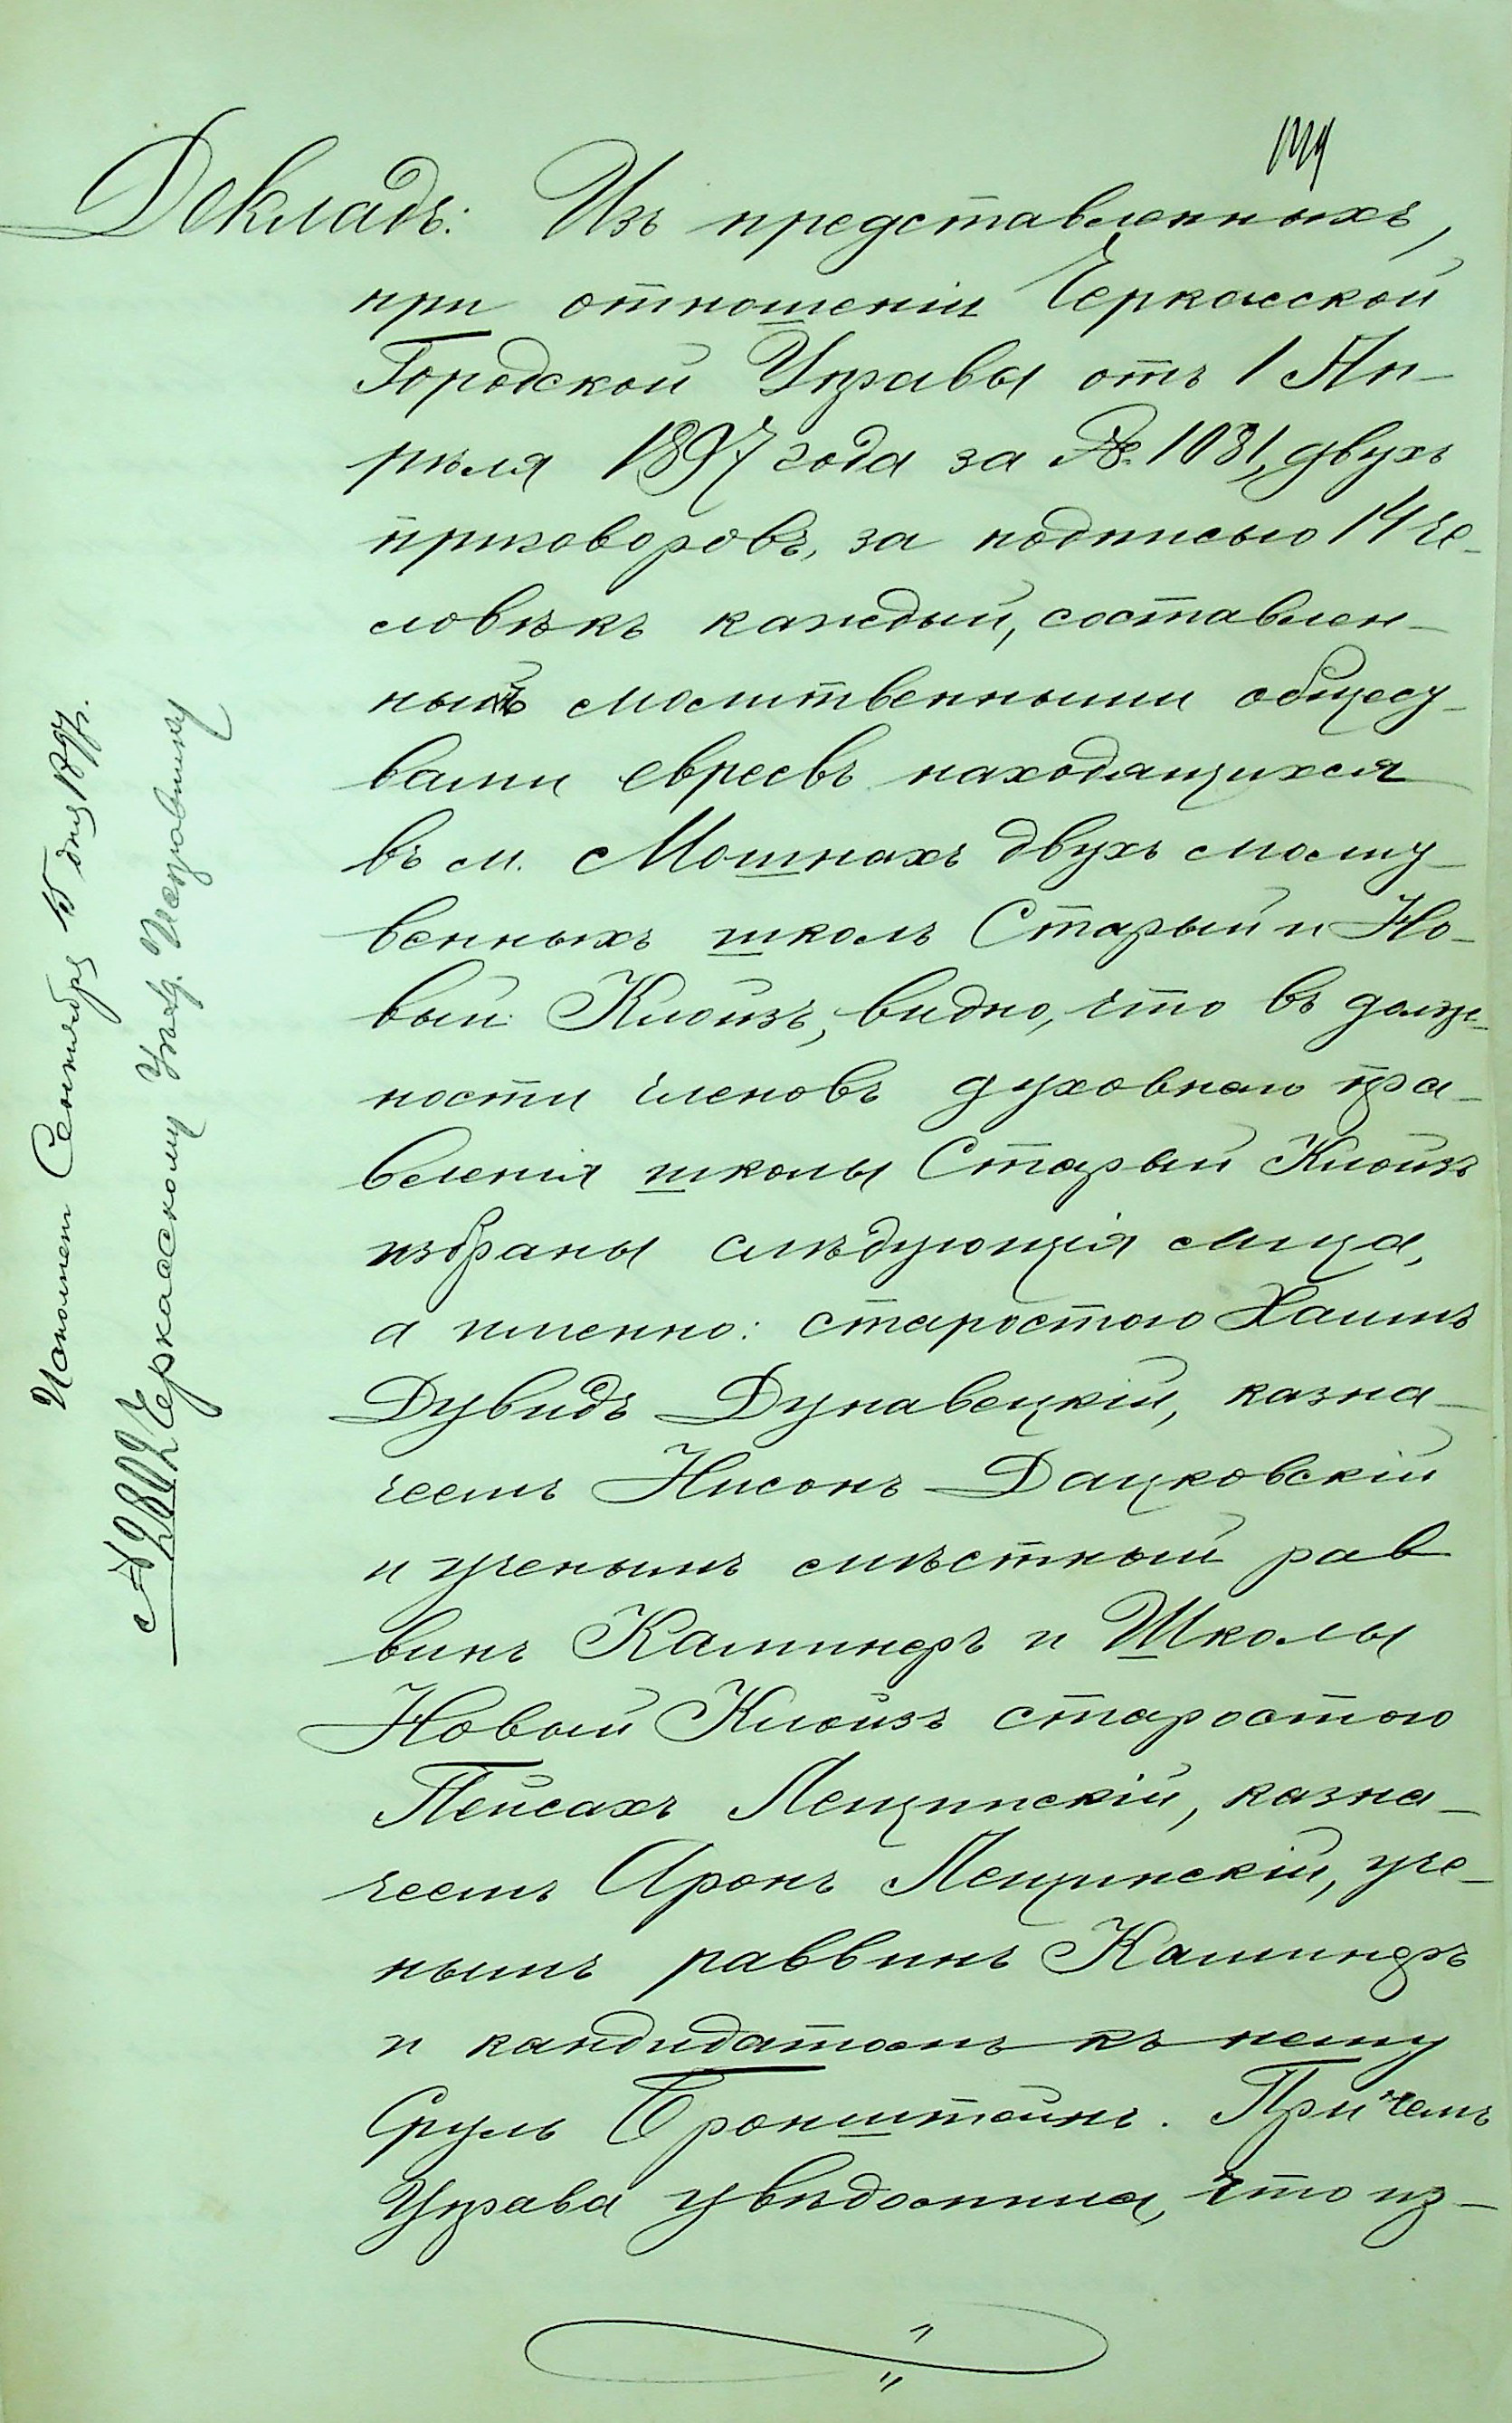 Докладъ: Изъ представленныхъ,
при отношеніи Черкасской
Городской Управы отъ 1 Ап-
рѣля 1897 года за № 1031, двухъ
приговоровъ, за подписью 14 че-
ловѣкъ каждый, составлен-
ныхъ молитвенными общест-
вами евреевъ находящихся
въ м. Мошнахъ двухъ молит-
венныхъ школъ Старый и Но-
вый Клойзъ, видно, что въ долж-
ности членовъ духовнаго пра-
вленія школы Старый Клойзъ
избраны слѣдующія лица,
а именно: старостою Хаимъ
Дувидъ Дунавецкій, казна-
чеемъ Нисонъ Дацковскій
и ученымъ мѣстный рав
винъ Каминеръ и Школы
Новый Клойзъ старостою
Пейсахъ Лещинскій, казна-
чеемъ Аронъ Лещинскій, уче-
нымъ раввинъ Каминеръ
и кандидатомъ къ нему
Сруль Бронштейнъ. При чемъ
Управа увѣдомила, что из-
Исполнен Сентября 15 дня 1897 г.
№ 2802 Черкасскому Уѣзд. Исправнику